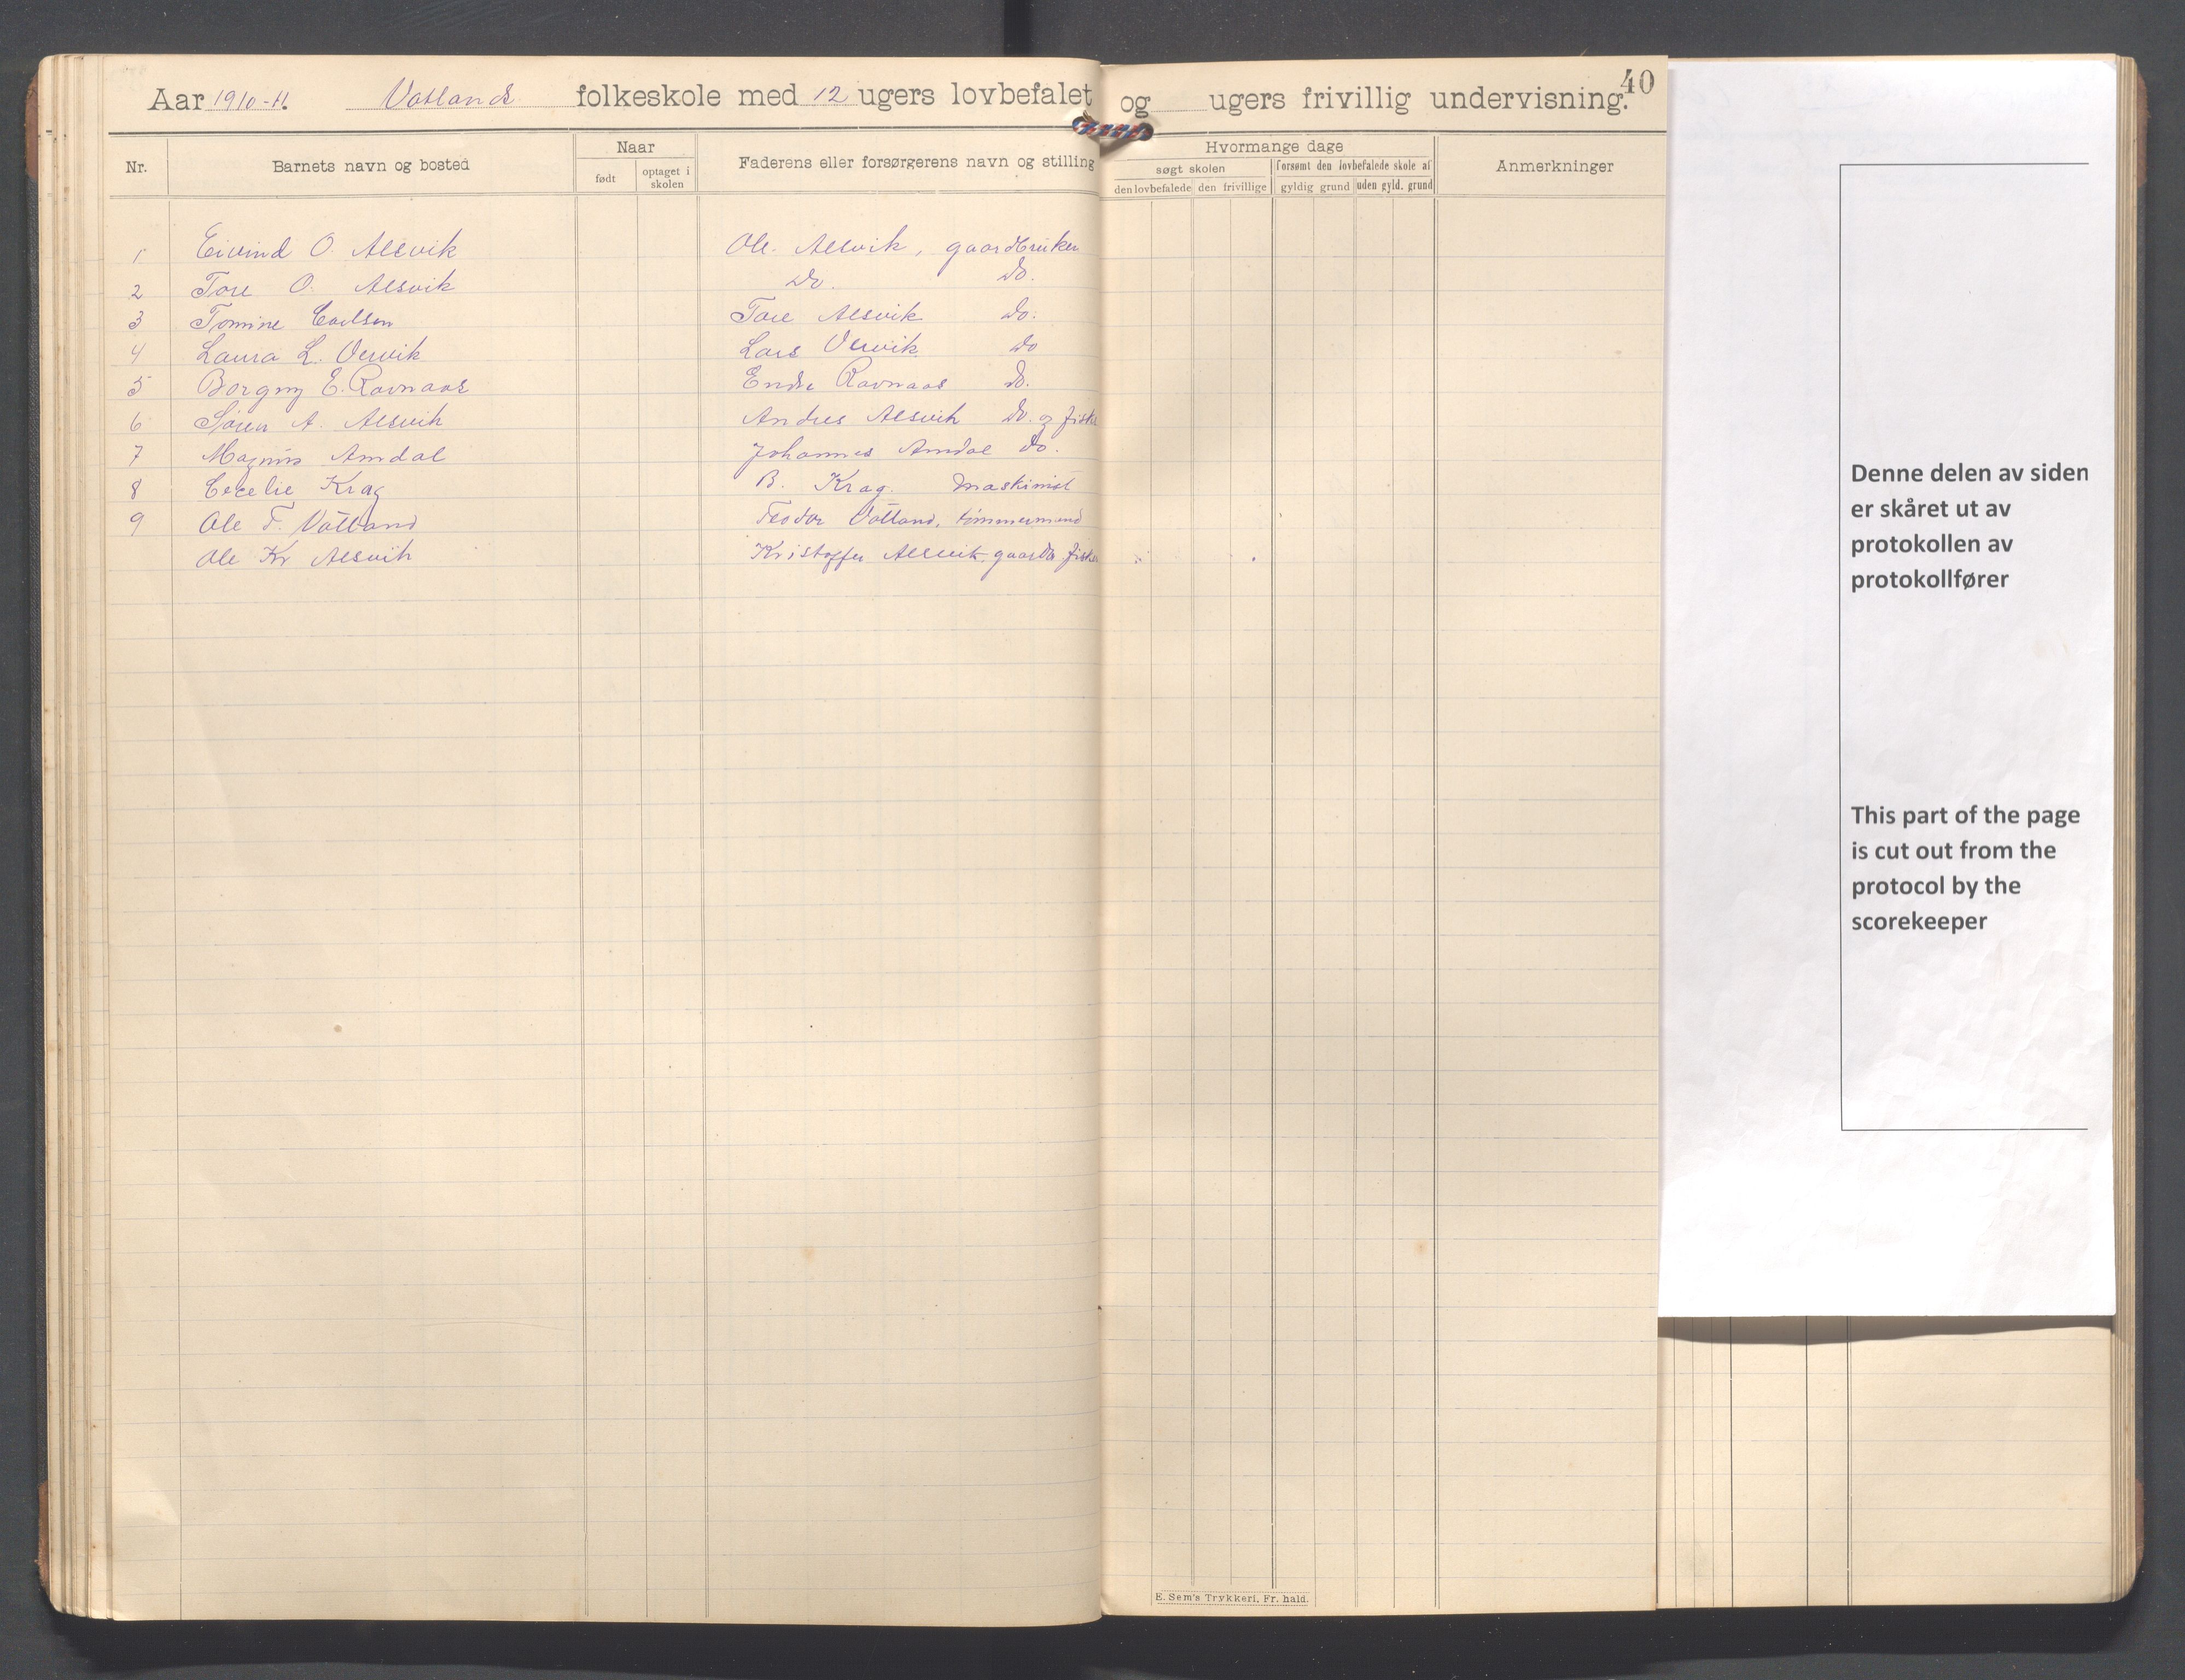 40
Aar 1910-11. Vatlands folkeskole med 12 ugers lovbefalet og ugers frivillig undervisning.
Nr. Barnets navn og bosted Naar Faderens eller forsørgerens navn og stilling Hvormange dage Anmerkninger
født optaget i skolen søgt skolen forsømt den lovbefalede skole af
den lovbefalede den frivillige gyldig grund uden gyld. grund
1 Eivind O. Alsvik Ole Alsvik, gaardbruker
2 Tore O. Alsvik Do. Do.
3 Tomine Carlsen Tore Alsvik Do.
4 Laura L. Vervik Lars Vervik Do
5 Borgny E. Ravnaas Endre Ravnaas Do.
6 Søren A. Alsvik Andres Alsvik Do. og fisker
7 Magnus Amdal Johannes Amdal Do.
8 Cecelie Krag B. Krag. Maskinist
9 Ole T. Vatland Teodor Vatland, tømmermand
Ole Kr Alsvik Kristoffer Alsvik, gaardb. fisker
E. Sem's Trykkeri, Fr. hald.
Denne delen av siden
er skåret ut av
protokollen av
protokollfører
This part of the page
is cut out from the
protocol by the
scorekeeper